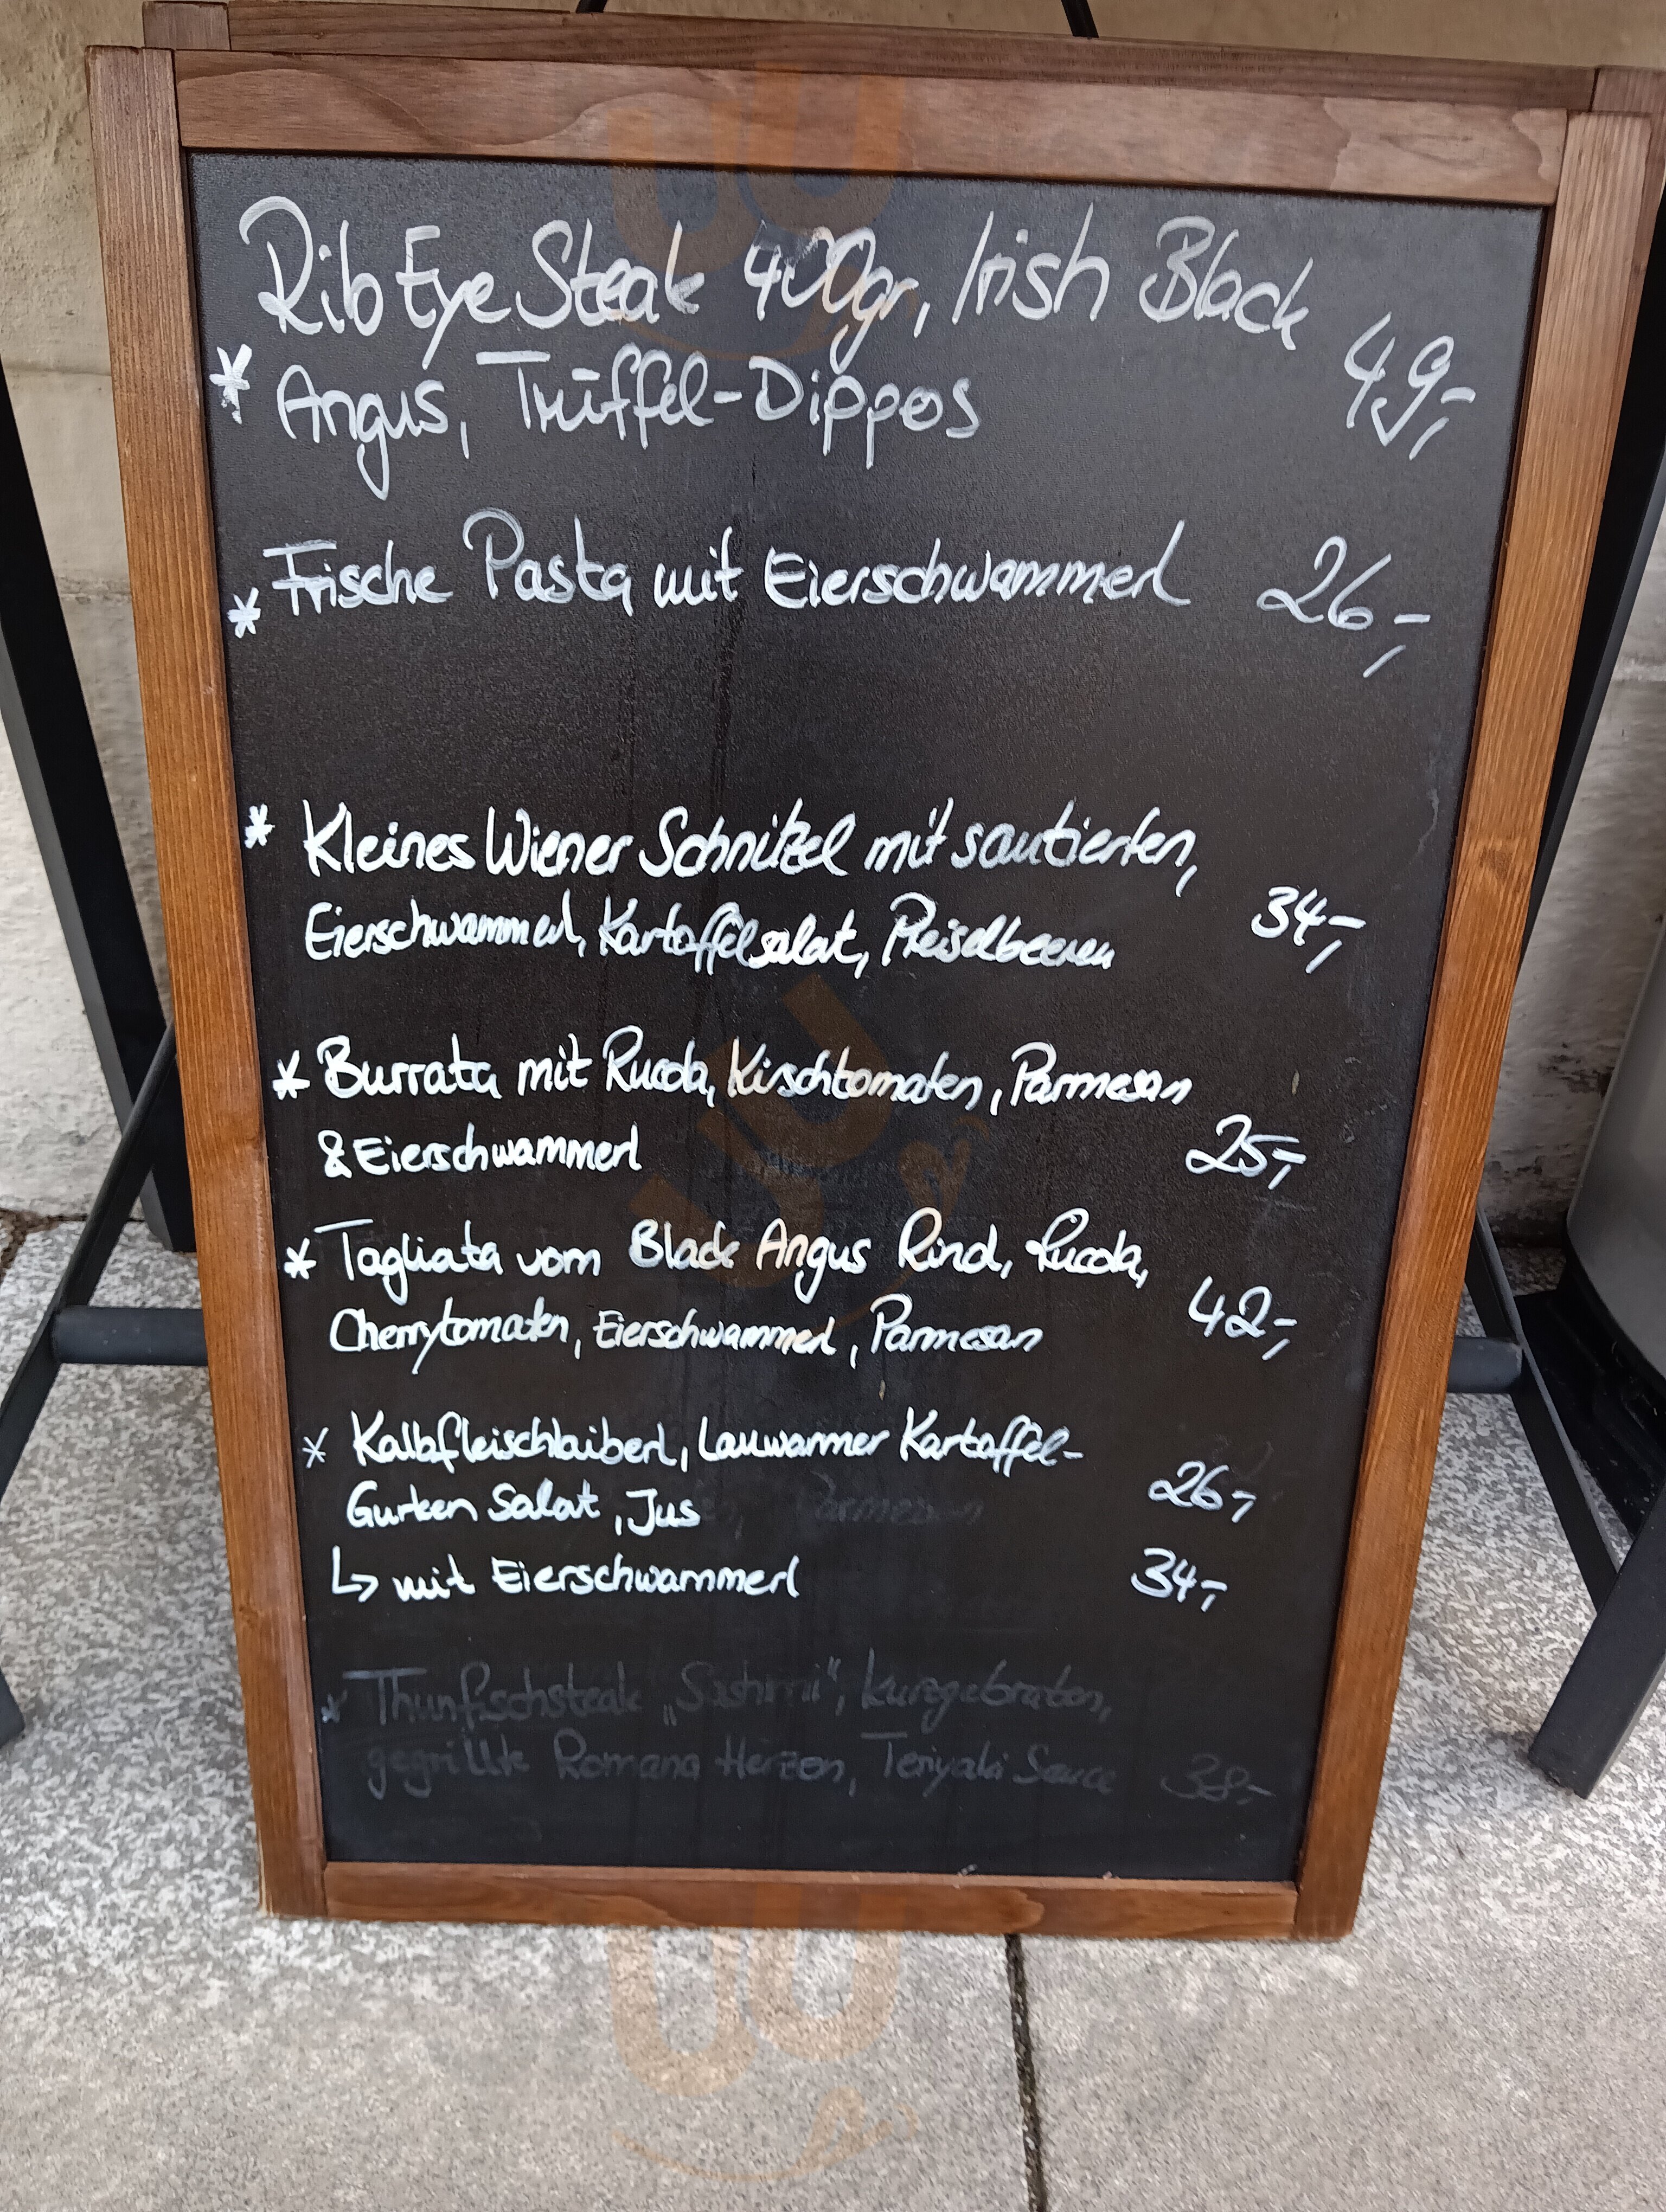 Rib Eye Steak 400gr, Irish Black
* Angus, Trüffel-Dippos 49,-
* Frische Pasta mit Eierschwammerl 26,-
* Kleines Wiener Schnitzel mit sautierten,
Eierschwammerl, Kartoffelsalat, Preiselbeeren 34,-
* Burrata mit Rucola, Kirschtomaten, Parmesan
& Eierschwammerl 25,-
* Tagliata vom Black Angus Rind, Rucola,
Cherrytomaten, Eierschwammerl, Parmesan 42,-
* Kalbfleischlaiberl, Lauwarmer Kartoffel-
Gurken Salat, Jus 26,-
Parmesan
↳ mit Eierschwammerl 34,-
* Thunfischsteak „Sashimi“, kurzgebraten,
gegrillte Romana Herzen, Teriyaki Sauce 38,-